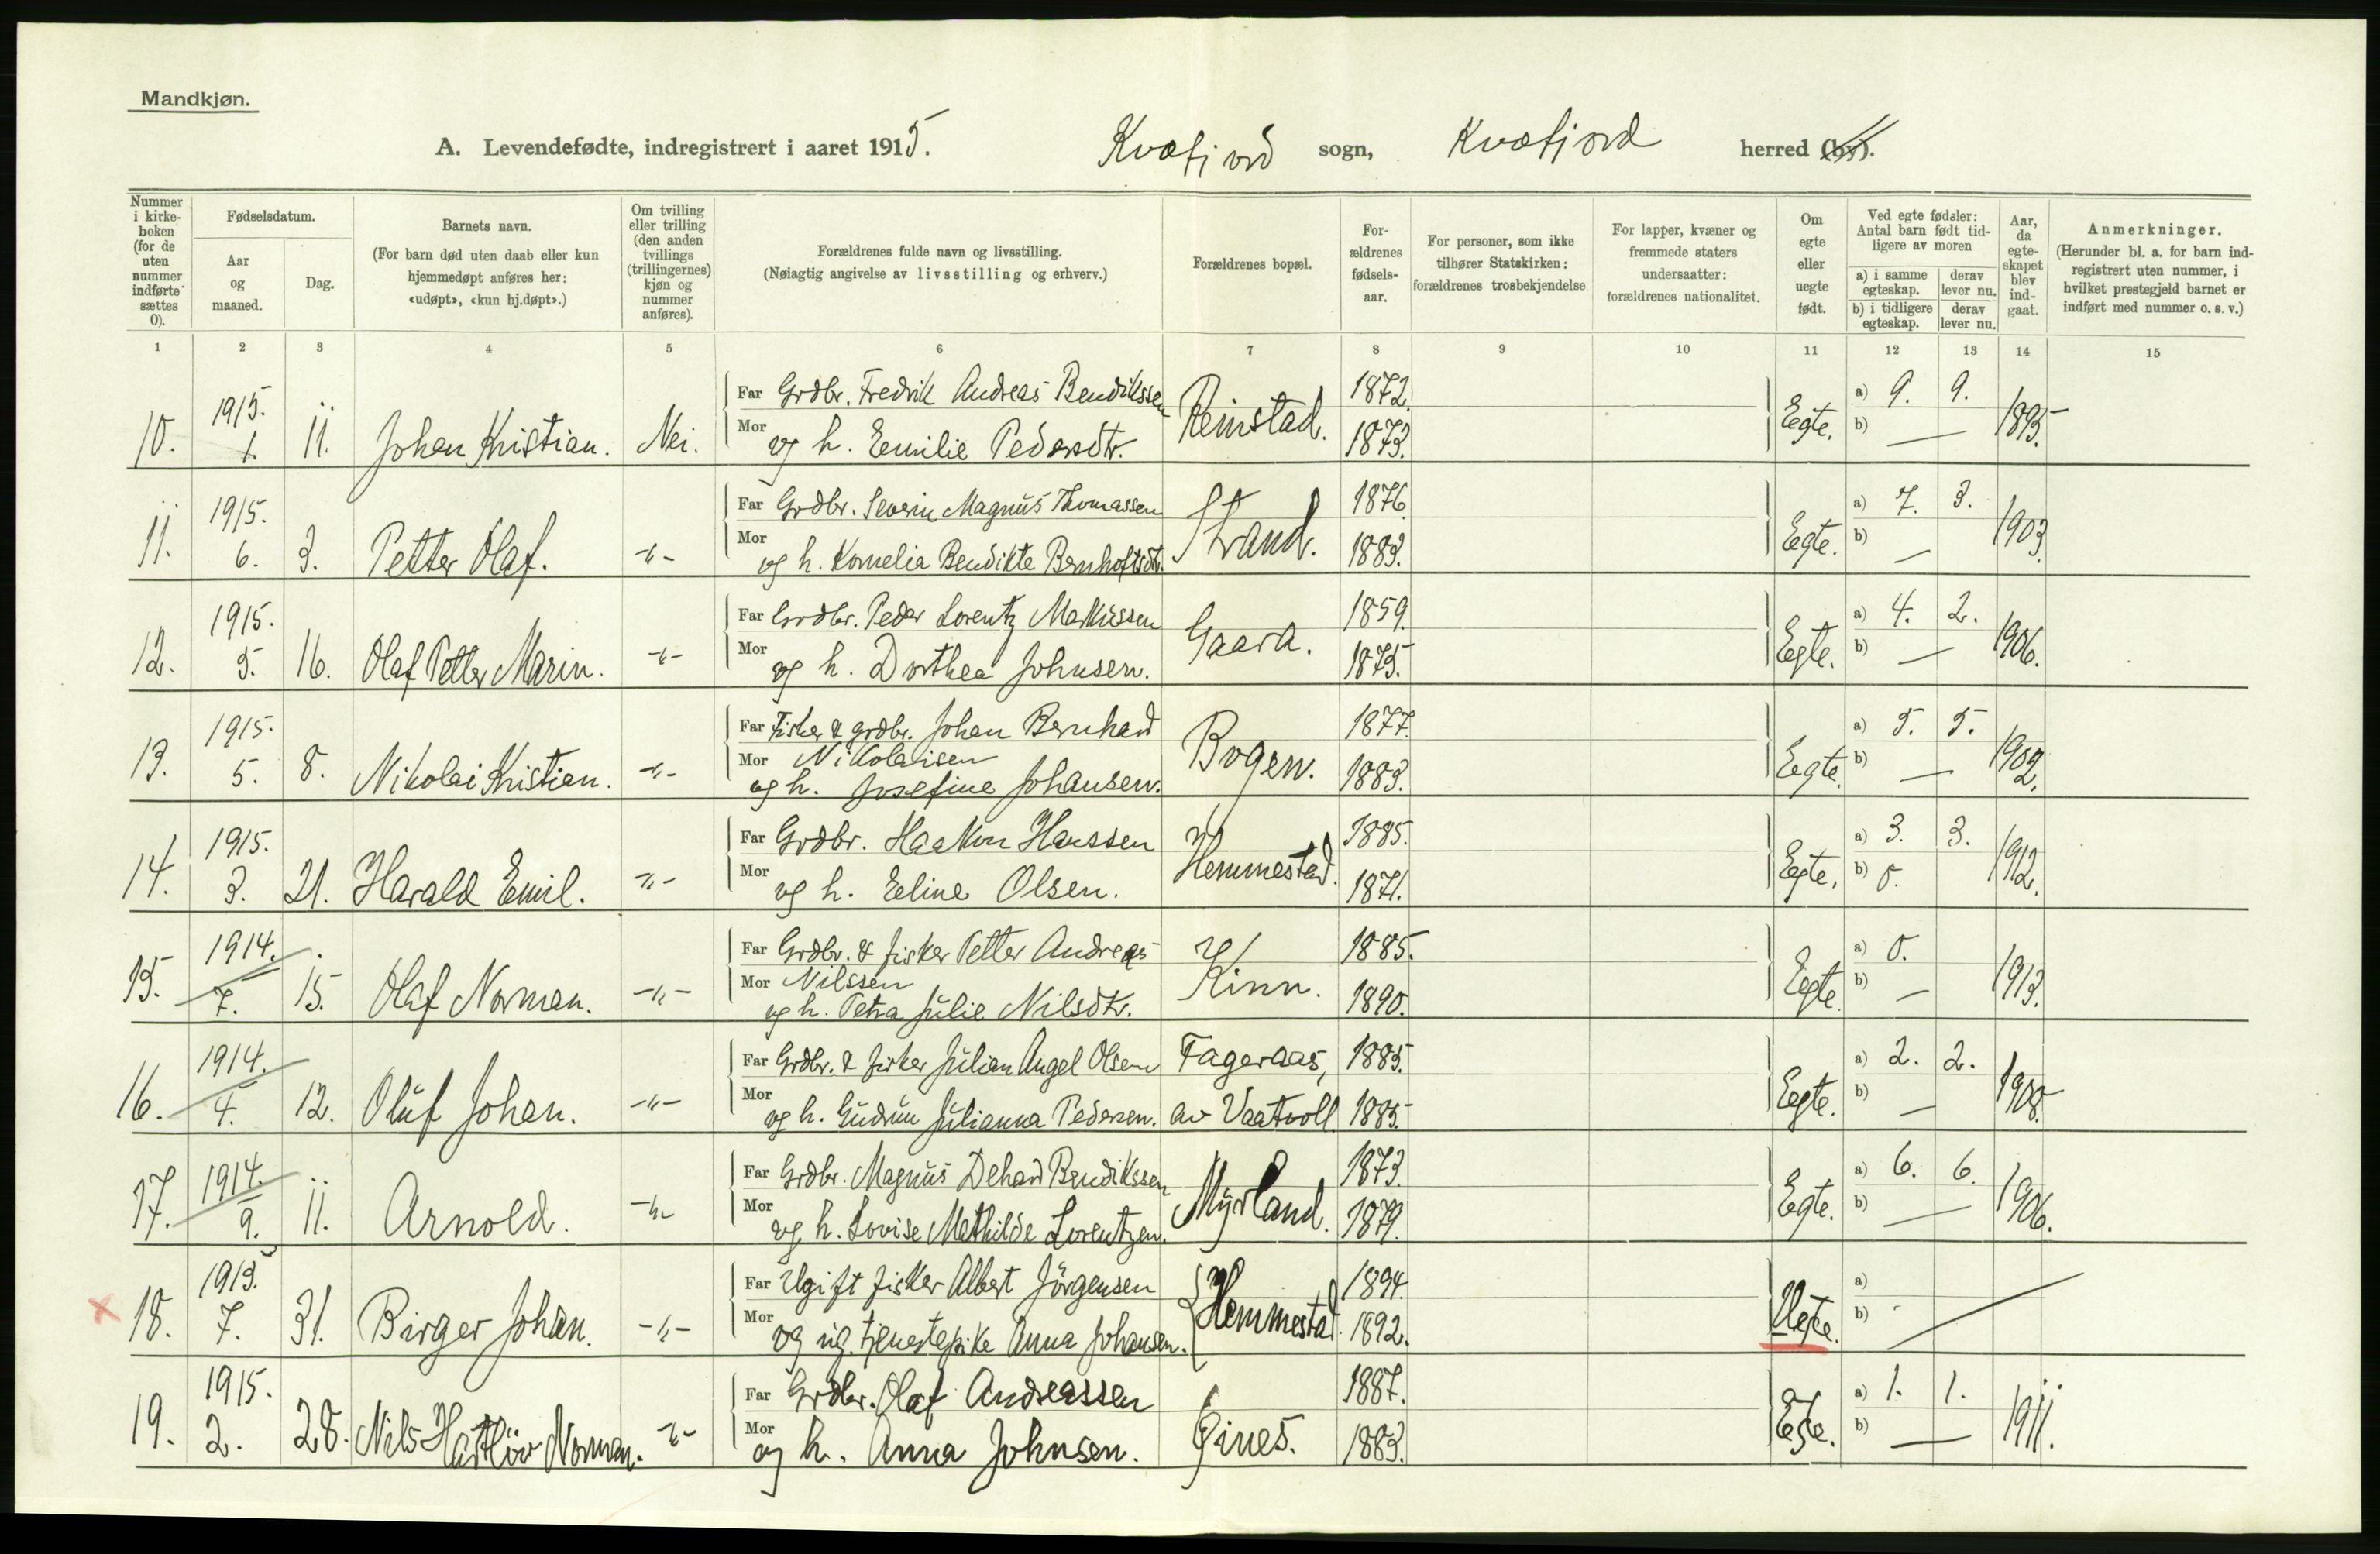 Mandkjøn.
A. Levendefødte, indregistrert i aaret 1915. Kvæfjord sogn, Kvæfjord herred (by).
Nummer i kirkeboken (for de uten nummer indførte sættes 0).
Fødselsdatum.
Aar og maaned.
Dag.
Barnets navn.
(For barn død uten daab eller kun hjemmedøpt anføres her: «udøpt», «kun hj.døpt».)
Om tvilling eller trilling (den anden tvillings (trillingernes) kjøn og nummer anføres).
Forældrenes fulde navn og livsstilling.
(Nøiagtig angivelse av livsstilling og erhverv.)
Forældrenes bopæl.
Forældrenes fødselsaar.
For personer, som ikke tilhører Statskirken: forældrenes trosbekjendelse
For lapper, kvæner og fremmede staters undersaatter: forældrenes nationalitet.
Om egte eller uegte født.
Ved egte fødsler: Antal barn født tidligere av moren
a) i samme egteskap. derav lever nu.
b) i tidligere egteskap. derav lever nu.
Aar, da egteskapet blev indgaat.
Anmerkninger.
(Herunder bl. a. for barn indregistrert uten nummer, i hvilket prestegjeld barnet er indført med nummer o. s. v.)
1 2 3 4 5 6 7 8 9 10 11 12 13 14 15
10. 1915. 1. 11. Johan Kristian. Nei.
Far Grdbr. Fredrik Andreas Bendikssen Reinstad. 1872.
Mor og h. Emilie Pedersdtr. 1873.
Egte. a) 9. 9. b) — 1895
11. 1915. 6. 3. Petter Olaf. -"-
Far Grdbr. Severin Magnus Thomassen Strand. 1876.
Mor og h. Kornelia Bendikte Bernhoftsdt. 1883.
Egte. a) 7. 3. b) — 1903.
12. 1915. 5. 16. Olaf Petter Marin. -"-
Far Grdbr. Peder Lorentz Markussen Gaara. 1859.
Mor og h. Dorthea Johnsen. 1875.
Egte. a) 4. 2. b) — 1906.
13. 1915. 5. 8. Nikolai Kristian. -"-
Far Fisker & grdbr. Johan Bernhard
Mor Nikolaisen Bogen. 1877.
og h. Josefine Johansen. 1883.
Egte. a) 5. 5. b) — 1902.
14. 1915. 3. 21. Harald Emil. -"-
Far Grdbr. Haakon Hanssen Hemmestad. 1885.
Mor og h. Eline Olsen. 1871.
Egte. a) 3. 3. b) 0. 1912.
15. 1914. 7. 15. Olaf Norman. -"-
Far Grdbr. & fisker Petter Andreas
Mor Nilssen Kinn. 1885.
og h. Petra Julie Nilsdtr. 1890.
Egte a) 0. b) — 1913.
16. 1914. 4. 12. Oluf Johan. -"-
Far Grdbr. & fisker Julian Angel Olsen Fageraas, 1885.
Mor og h. Gudrun Julianna Pedersen. av Vaatvoll. 1885.
Egte. a) 2. 2. b) — 1908.
17. 1914. 9. 11. Arnold. -"-
Far Grdbr. Magnus Dehard Bendikssen Myrland. 1873.
Mor og h. Lovise Mathilde Lorentzen. 1879.
Egte. a) 6. 6. b) — 1906.
x 18. 1915. 7. 31. Birger Johan. -"-
Far Ugift fisker Albert Jörgensen Hemmestad. 1894.
Mor og ug. tjenestepike Anna Johansen. 1892.
Uegte. a) b)
19. 1915. 2. 28. Nils Norman. -"-
Far Grdbr. Olaf Andreassen Gines. 1887.
Mor og h. Anna Johnsen. 1883.
Egte. a) 1. 1. b) — 1911.